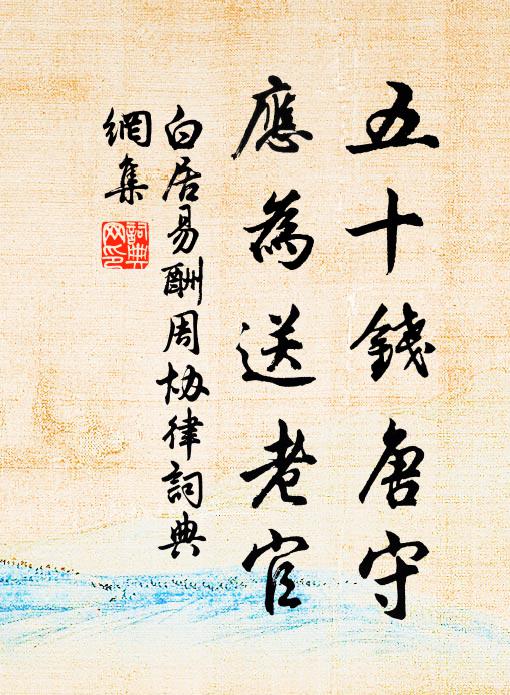 五十錢唐守
應為送老官
白居易酬周协律詞典
網集
詞典
网印